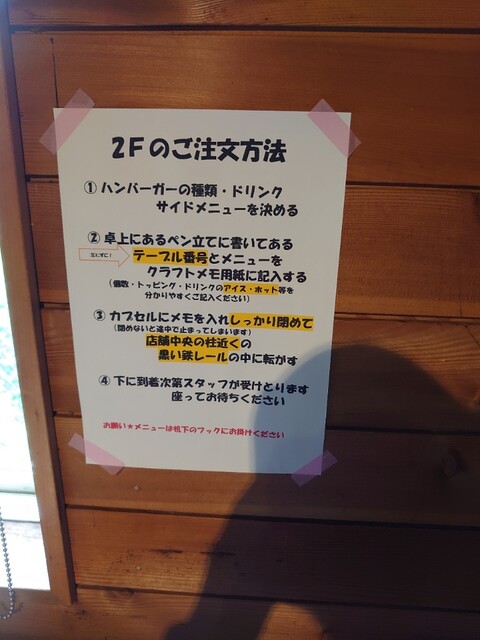 2Fのご注文方法
① ハンバーガーの種類・ドリンク
サイドメニューを決める
② 卓上にあるペン立てに書いてある
忘れずに！
テーブル番号とメニューを
クラフトメモ用紙に記入する
(個数・トッピング・ドリンクのアイス・ホット等を
分かりやすくご記入ください)
③ カプセルにメモを入れしっかり閉めて
(閉めないと途中で止まってしまいます)
店舗中央の柱近くの
黒い鉄レールの中に転がす
④ 下に到着次第スタッフが受けとります
座ってお待ちください
お願い★メニューは机下のフックにお掛けください